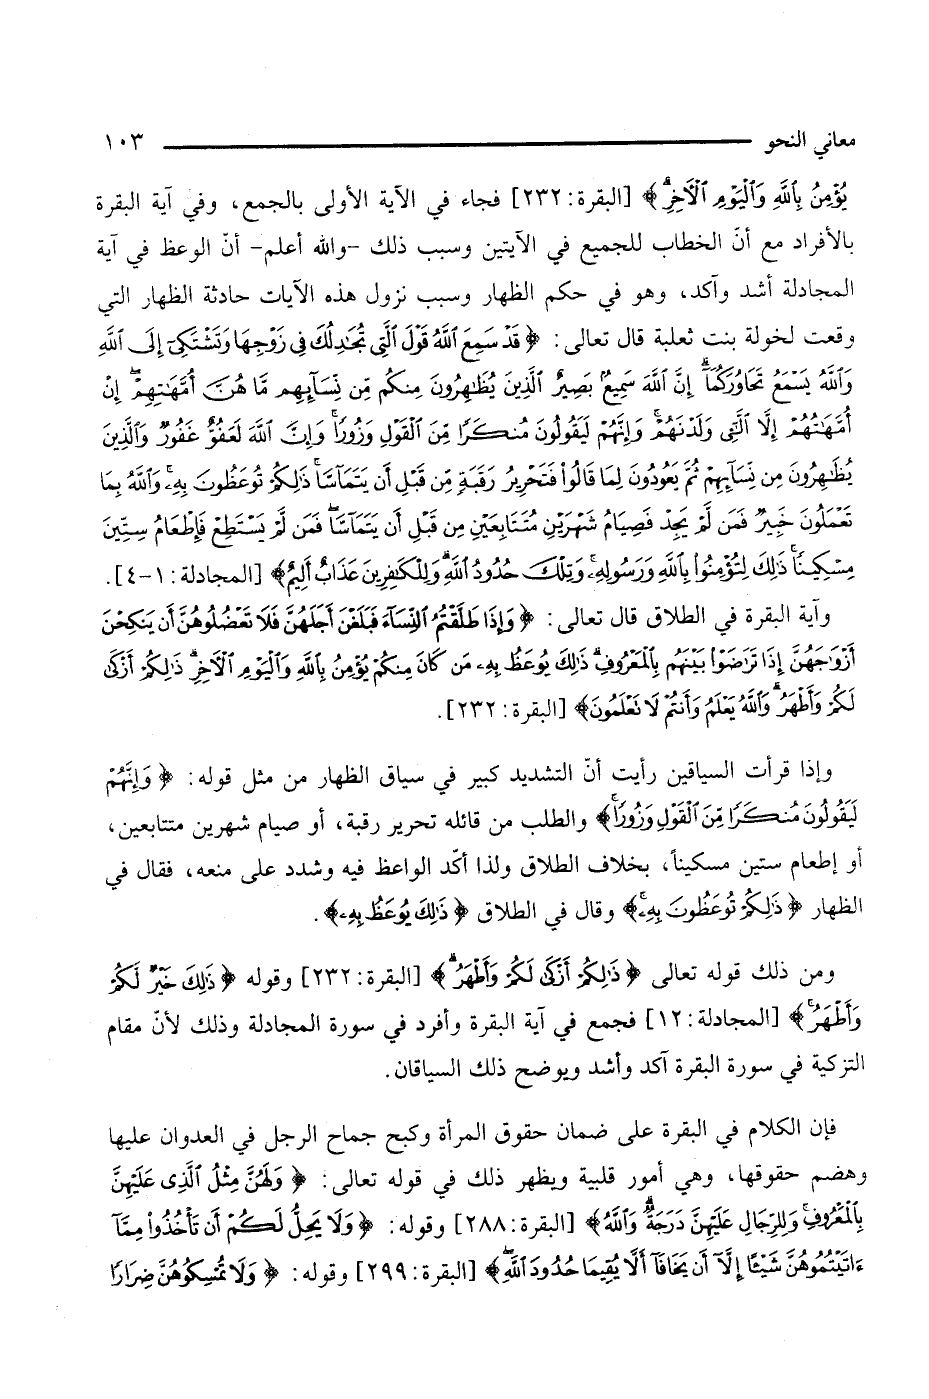 معاني النحو ١٠٣
يُؤْمِنُ بِاللَّهِ وَالْيَوْمِ الْآخِرِ﴾ [البقرة: ٢٣٢] فجاء في الآية الأولى بالجمع، وفي آية البقرة
بالأفراد مع أنّ الخطاب للجميع في الآيتين وسبب ذلك -والله أعلم- أنّ الوعظ في آية
المجادلة أشد وآكد، وهو في حكم الظهار وسبب نزول هذه الآيات حادثة الظهار التي
وقعت لخولة بنت ثعلبة قال تعالى: ﴿قَدْ سَمِعَ اللَّهُ قَوْلَ الَّتِي تُجَادِلُكَ فِي زَوْجِهَا وَتَشْتَكِي إِلَى اللَّهِ
وَاللَّهُ يَسْمَعُ تَحَاوُرَكُمَا إِنَّ اللَّهَ سَمِيعٌ بَصِيرٌ الَّذِينَ يُظَاهِرُونَ مِنكُم مِّن نِّسَائِهِم مَّا هُنَّ أُمَّهَاتِهِمْ إِنْ
أُمَّهَاتُهُمْ إِلَّا اللَّائِي وَلَدْنَهُمْ وَإِنَّهُمْ لَيَقُولُونَ مُنكَرًا مِّنَ الْقَوْلِ وَزُورًا وَإِنَّ اللَّهَ لَعَفُوٌّ غَفُورٌ وَالَّذِينَ
يُظَاهِرُونَ مِن نِّسَائِهِمْ ثُمَّ يَعُودُونَ لِمَا قَالُوا فَتَحْرِيرُ رَقَبَةٍ مِّن قَبْلِ أَن يَتَمَاسَّا ذَلِكُمْ تُوعَظُونَ بِهِ وَاللَّهُ بِمَا
تَعْمَلُونَ خَبِيرٌ فَمَن لَّمْ يَجِدْ فَصِيَامُ شَهْرَيْنِ مُتَتَابِعَيْنِ مِن قَبْلِ أَن يَتَمَاسَّا فَمَن لَّمْ يَسْتَطِعْ فَإِطْعَامُ سِتِّينَ
مِسْكِينًا ذَلِكَ لِتُؤْمِنُوا بِاللَّهِ وَرَسُولِهِ وَتِلْكَ حُدُودُ اللَّهِ وَلِلْكَافِرِينَ عَذَابٌ أَلِيمٌ﴾ [المجادلة: ١-٤].
وآية البقرة في الطلاق قال تعالى: ﴿وَإِذَا طَلَّقْتُمُ النِّسَاءَ فَبَلَغْنَ أَجَلَهُنَّ فَلَا تَعْضُلُوهُنَّ أَن يَنكِحْنَ
أَزْوَاجَهُنَّ إِذَا تَرَاضَوْا بَيْنَهُم بِالْمَعْرُوفِ ذَلِكَ يُوعَظُ بِهِ مَن كَانَ مِنكُمْ يُؤْمِنُ بِاللَّهِ وَالْيَوْمِ الْآخِرِ ذَلِكُمْ أَزْكَى
لَكُمْ وَأَطْهَرُ وَاللَّهُ يَعْلَمُ وَأَنتُمْ لَا تَعْلَمُونَ﴾ [البقرة: ٢٣٢].
وإذا قرأت السياقين رأيت أنّ التشديد كبير في سياق الظهار من مثل قوله: ﴿وَإِنَّهُمْ
لَيَقُولُونَ مُنكَرًا مِّنَ الْقَوْلِ وَزُورًا﴾ والطلب من قائله تحرير رقبة، أو صيام شهرين متتابعين،
أو إطعام ستين مسكيناً، بخلاف الطلاق ولذا أكّد الواعظ فيه وشدد على منعه، فقال في
الظهار ﴿ذَلِكُمْ تُوعَظُونَ بِهِ﴾ وقال في الطلاق ﴿ذَلِكَ يُوعَظُ بِهِ﴾.
ومن ذلك قوله تعالى ﴿ذَلِكُمْ أَزْكَى لَكُمْ وَأَطْهَرُ﴾ [البقرة: ٢٣٢] وقوله ﴿ذَلِكَ خَيْرٌ لَكُمْ
وَأَطْهَرُ﴾ [المجادلة: ١٢] فجمع في آية البقرة وأفرد في سورة المجادلة وذلك لأنّ مقام
التزكية في سورة البقرة آكد وأشد ويوضح ذلك السياقان.
فإن الكلام في البقرة على ضمان حقوق المرأة وكبح جماح الرجل في العدوان عليها
وهضم حقوقها، وهي أمور قلبية ويظهر ذلك في قوله تعالى: ﴿وَلَهُنَّ مِثْلُ الَّذِي عَلَيْهِنَّ
بِالْمَعْرُوفِ وَلِلرِّجَالِ عَلَيْهِنَّ دَرَجَةٌ وَاللَّهُ﴾ [البقرة: ٢٨٨] وقوله: ﴿وَلَا يَحِلُّ لَكُمْ أَن تَأْخُذُوا مِمَّا
آتَيْتُمُوهُنَّ شَيْئًا إِلَّا أَن يَخَافَا أَلَّا يُقِيمَا حُدُودَ اللَّهِ﴾ [البقرة: ٢٩٩] وقوله: ﴿وَلَا تُمْسِكُوهُنَّ ضِرَارًا